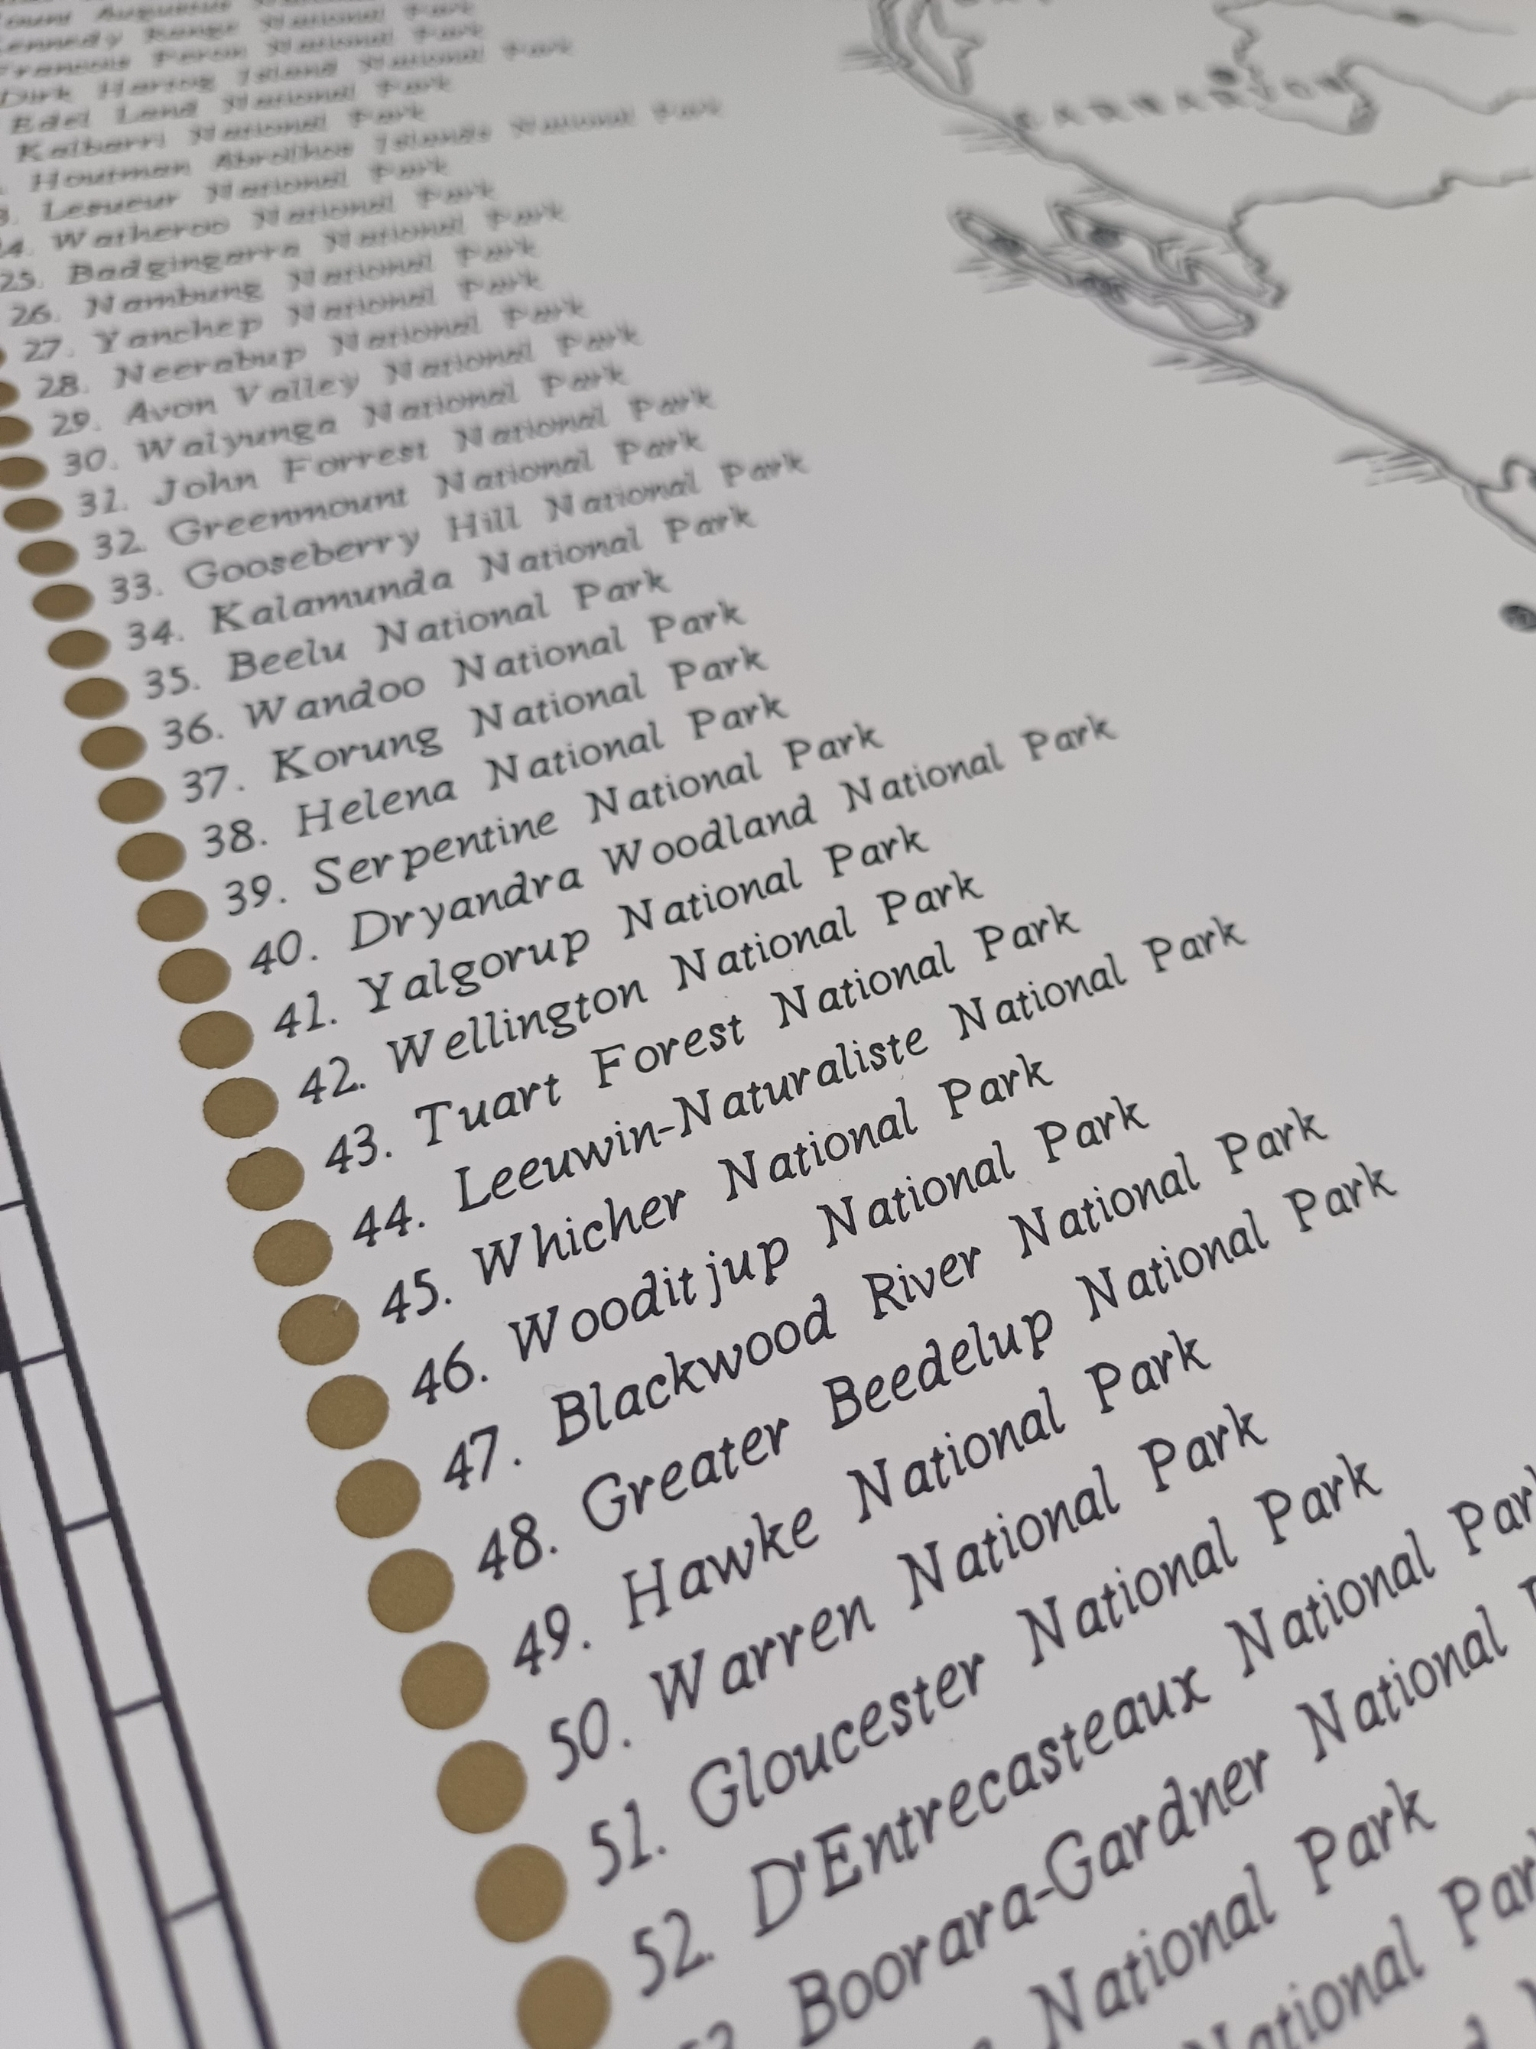 Mount Augustus National Park
Kennedy Range National Park
Francois Peron National Park
Dirk Hartog Island National Park
Edel Land National Park
Kalbarri National Park
Houtman Abrolhos Islands National Park
3. Lesueur National Park
24. Watheroo National Park
25. Badgingarra National Park
26. Nambung National Park
27. Yanchep National Park
28. Neerabup National Park
29. Avon Valley National Park
30. Walyunga National Park
31. John Forrest National Park
32. Greenmount National Park
33. Gooseberry Hill National Park
34. Kalamunda National Park
35. Beelu National Park
36. Wandoo National Park
37. Korung National Park
38. Helena National Park
39. Serpentine National Park
40. Dryandra Woodland National Park
41. Yalgorup National Park
42. Wellington National Park
43. Tuart Forest National Park
44. Leeuwin-Naturaliste National Park
45. Whicher National Park
46. Wooditjup National Park
47. Blackwood River National Park
48. Greater Beedelup National Park
49. Hawke National Park
50. Warren National Park
51. Gloucester National Park
52. D'Entrecasteaux National Park
53. Boorara-Gardner National
National Park
National Park
CARNARVON